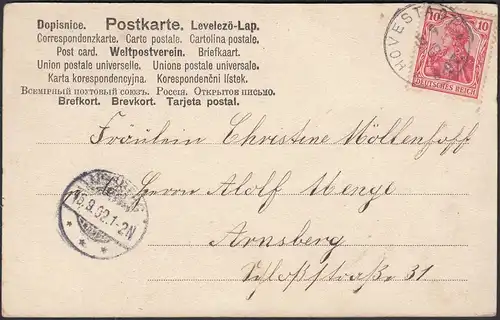 Dopisnice. Postkarte. Levelező-Lap.
Correspondenzkarte. Carte postale. Cartolina postale.
Post card. Weltpostverein. Briefkaart.
Union postale universelle. Unione postale universale.
Karta korespondencyjna. Korespondenční lístek.
Всемірный почтовый союзъ. Россія. Открытое письмо.
Brefkort. Brevkort. Tarjeta postal.
HOVESTA
10 10
DEUTSCHES REICH
Fräulein Christine Möllenhoff
Herrn Adolf Menge
Arnsberg
Schloßstraße 31
ARNSBERG
13.9.02.1-2N
* * *